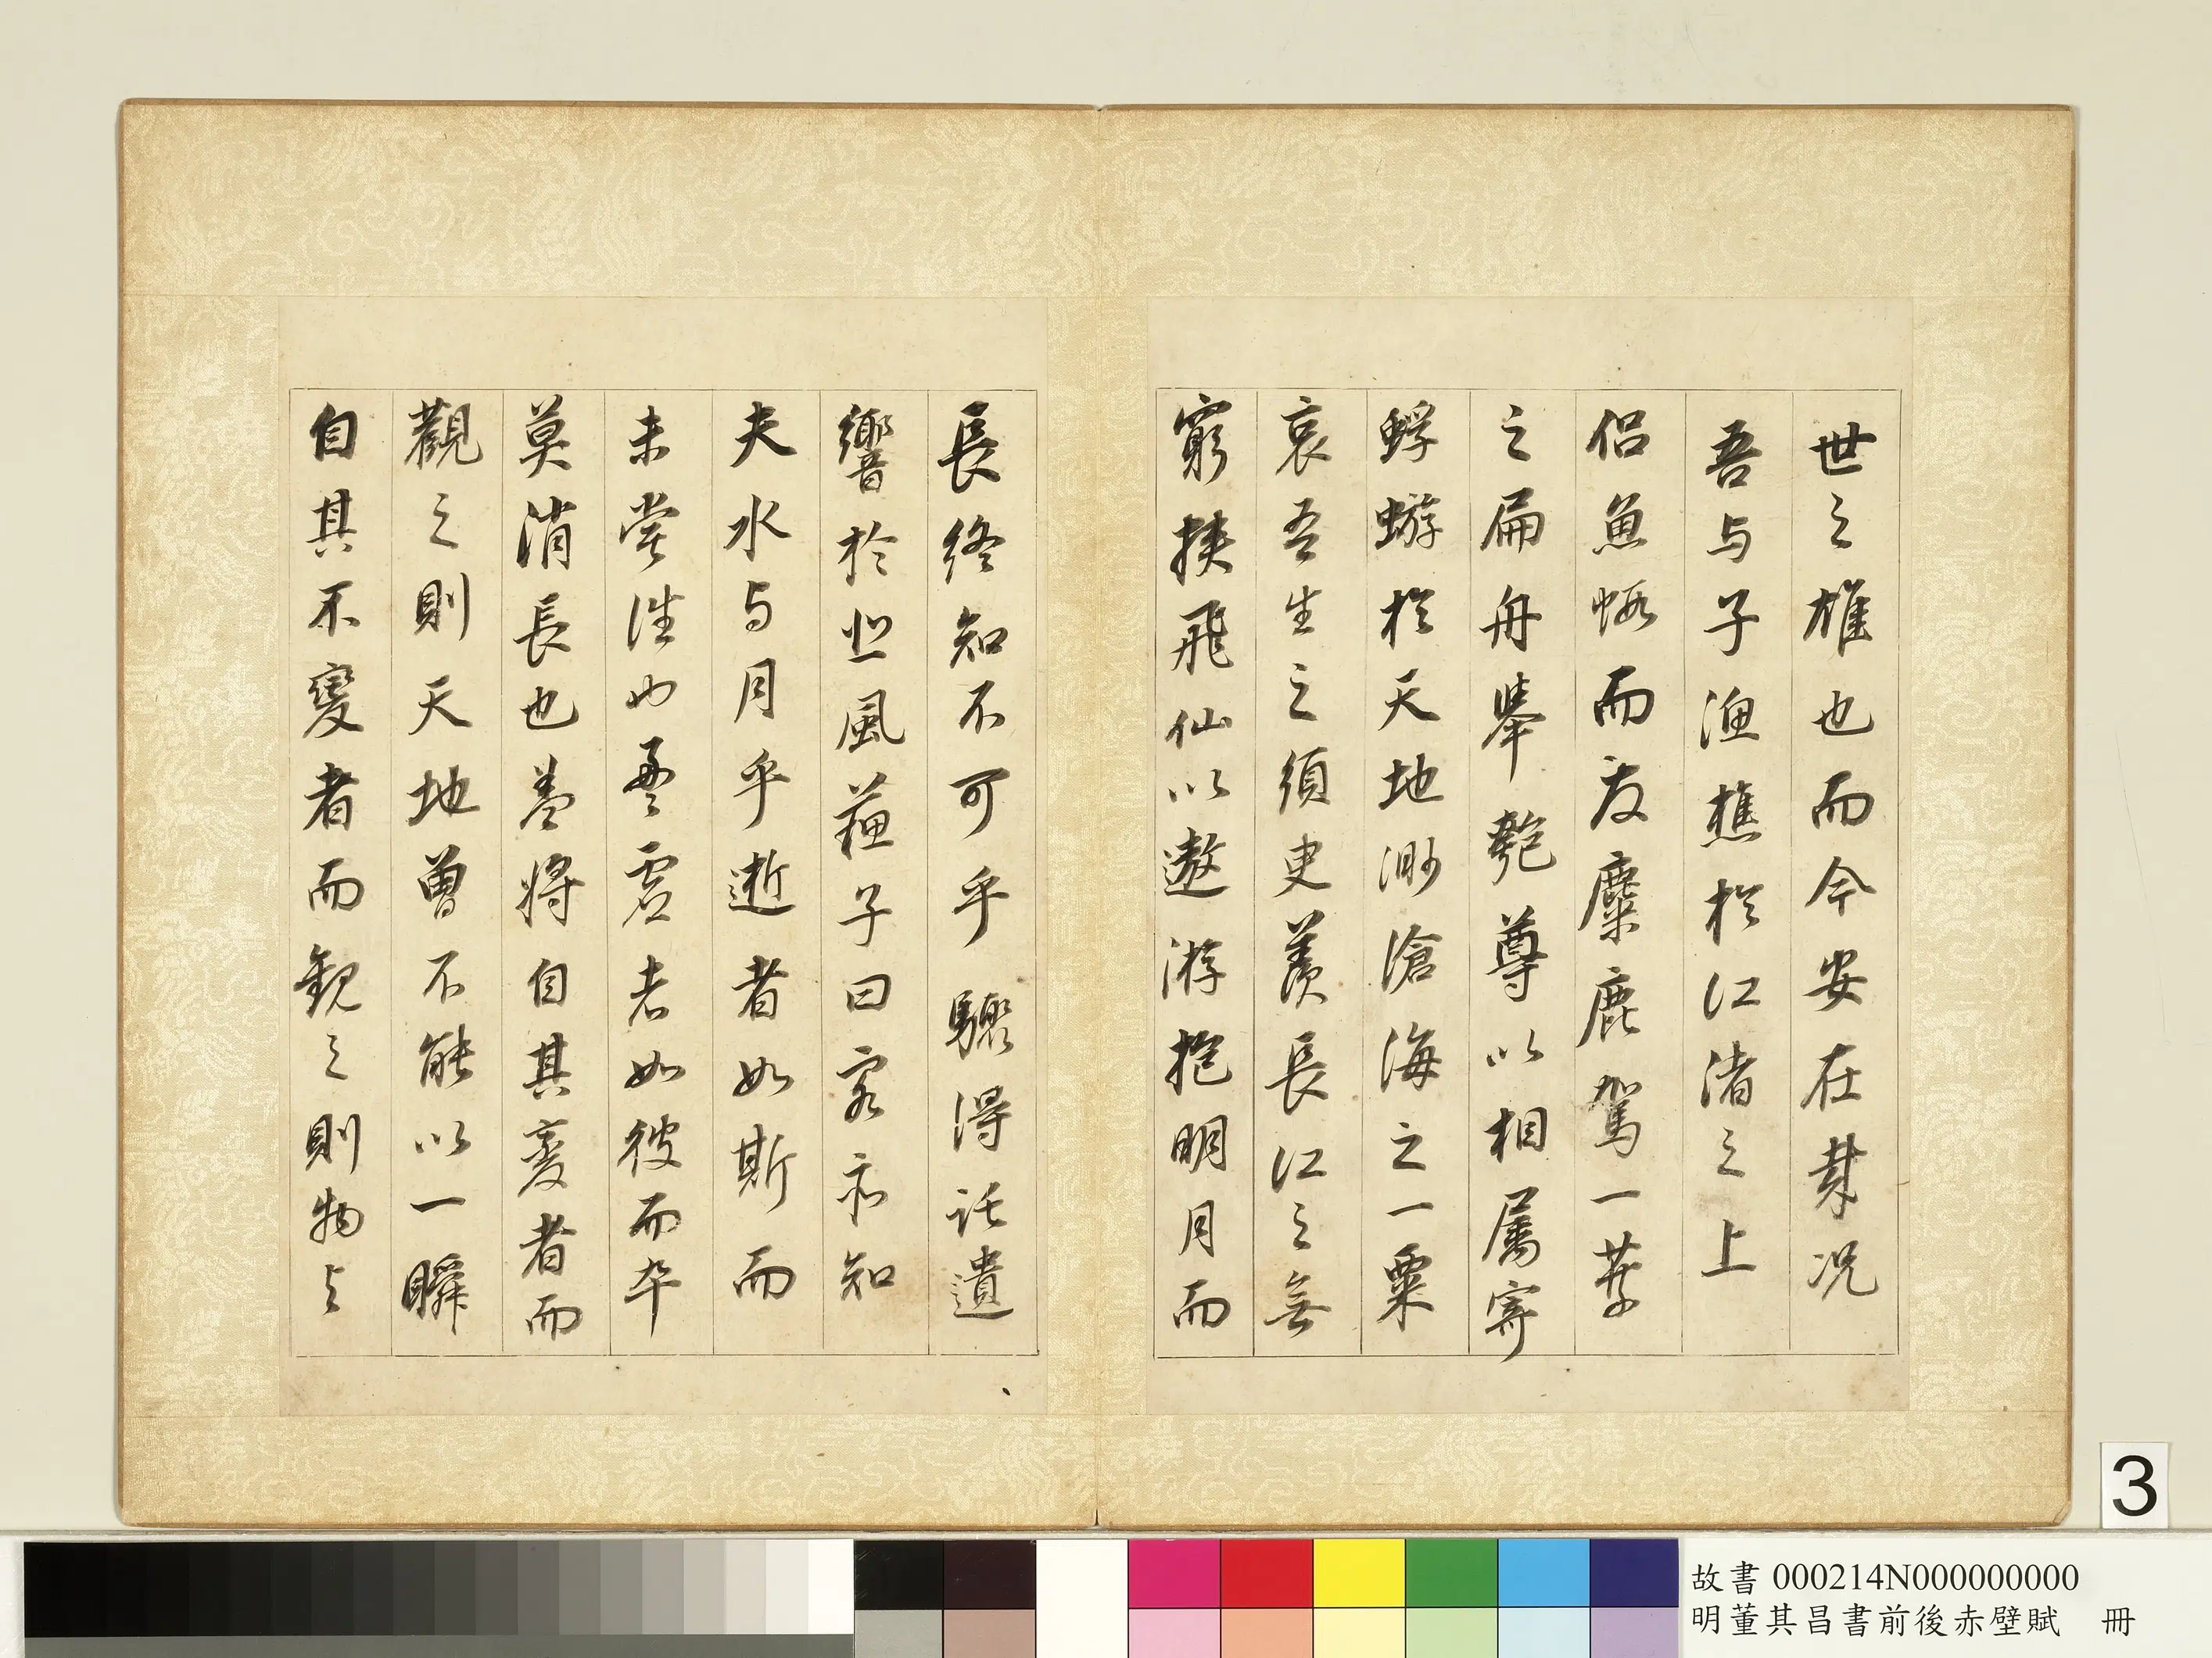 世之雄也而今安在哉况
吾与子漁樵於江渚之上
侣魚蝦而友麋鹿駕一葉
之扁舟舉匏尊以相屬寄
蜉蝣於天地渺滄海之一粟
哀吾生之須臾羨長江之無
窮挾飛仙以遨游抱明月而
長終知不可乎驟得託遺
響於悲風蘇子曰客亦知
夫水与月乎逝者如斯而
未嘗往也盈虚者如彼而卒
莫消長也盖將自其變者而
觀之則天地曾不能以一瞬
自其不變者而觀之則物与
3
故書 000214N000000000
明董其昌書前後赤壁賦 冊